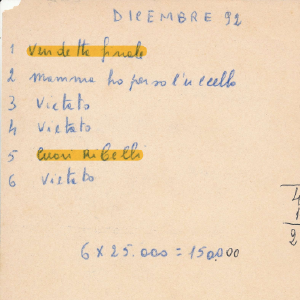 DICEMBRE 92
1 Vendetta finale
2 Mamma ho perso l'uccello
3 Vietato
4 Vietato
5 Cuori Ribelli
6 Vietato
4
1
2
6 x 25.000 = 150.000